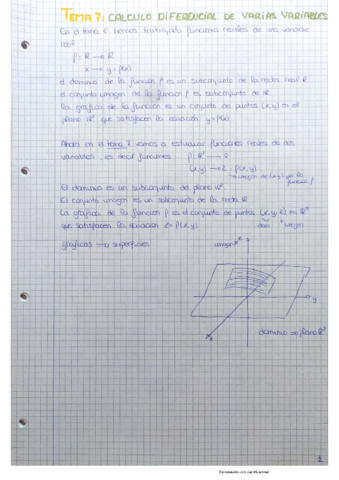 TEMA 7: CALCULO DIFERENCIAL DE VARIAS VARIABLES
En el tema 6 hemos trabajado funciones reales de una variable
real
f: R → R
x → y = f(x)
el dominio de la función f es un subconjunto de la recta real R
el conjunto imagen de la función f es subconjunto de R
la gráfica de la función es un conjunto de puntos (x,y) en el
plano R² que satisfacen la ecuación y=f(x)
Ahora en el tema 7 vamos a estudiar funciones reales de dos
variables, es decir funciones f: R² → R
(x,y) → z = f(x,y)
→ imagen de (x,y) por la
función f
El dominio es un subconjunto del plano R²
El conjunto imagen es un subconjunto de la recta R
La gráfica de la función f es el conjunto de puntos (x,y,z) en R³
que satisfacen la ecuación z=f(x,y) dom imagen
gráficas → superficies
imagen R
z
y
x
dominio → plano R²
1